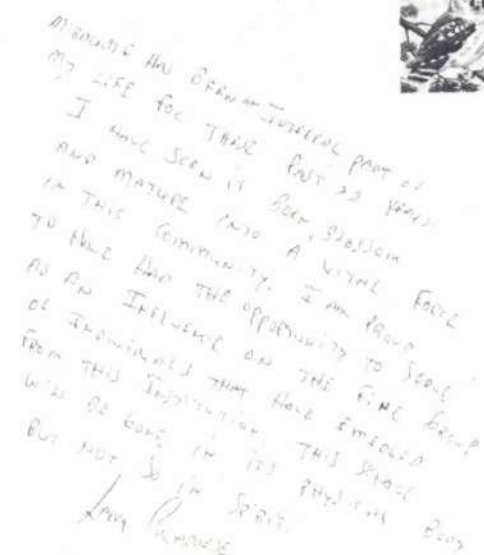 HAS BEEN AN INTEGRAL PART OF
MY LIFE FOR THESE PAST 22 YEARS.
I HAVE SEEN IT BORN, BLOSSOM
AND MATURE INTO A VITAL FORCE
IN THIS COMMUNITY. I AM PROUD
TO HAVE HAD THE OPPORTUNITY TO SERVE
AS AN INFLUENCE ON THE FINE GROUP
OF INDIVIDUALS THAT HAVE EMERGED
FROM THIS INSTITUTION. THIS SCHOOL
WILL BE GONE IN ITS PHYSICAL BODY
BUT NOT SO IN SPIRIT.
Larry